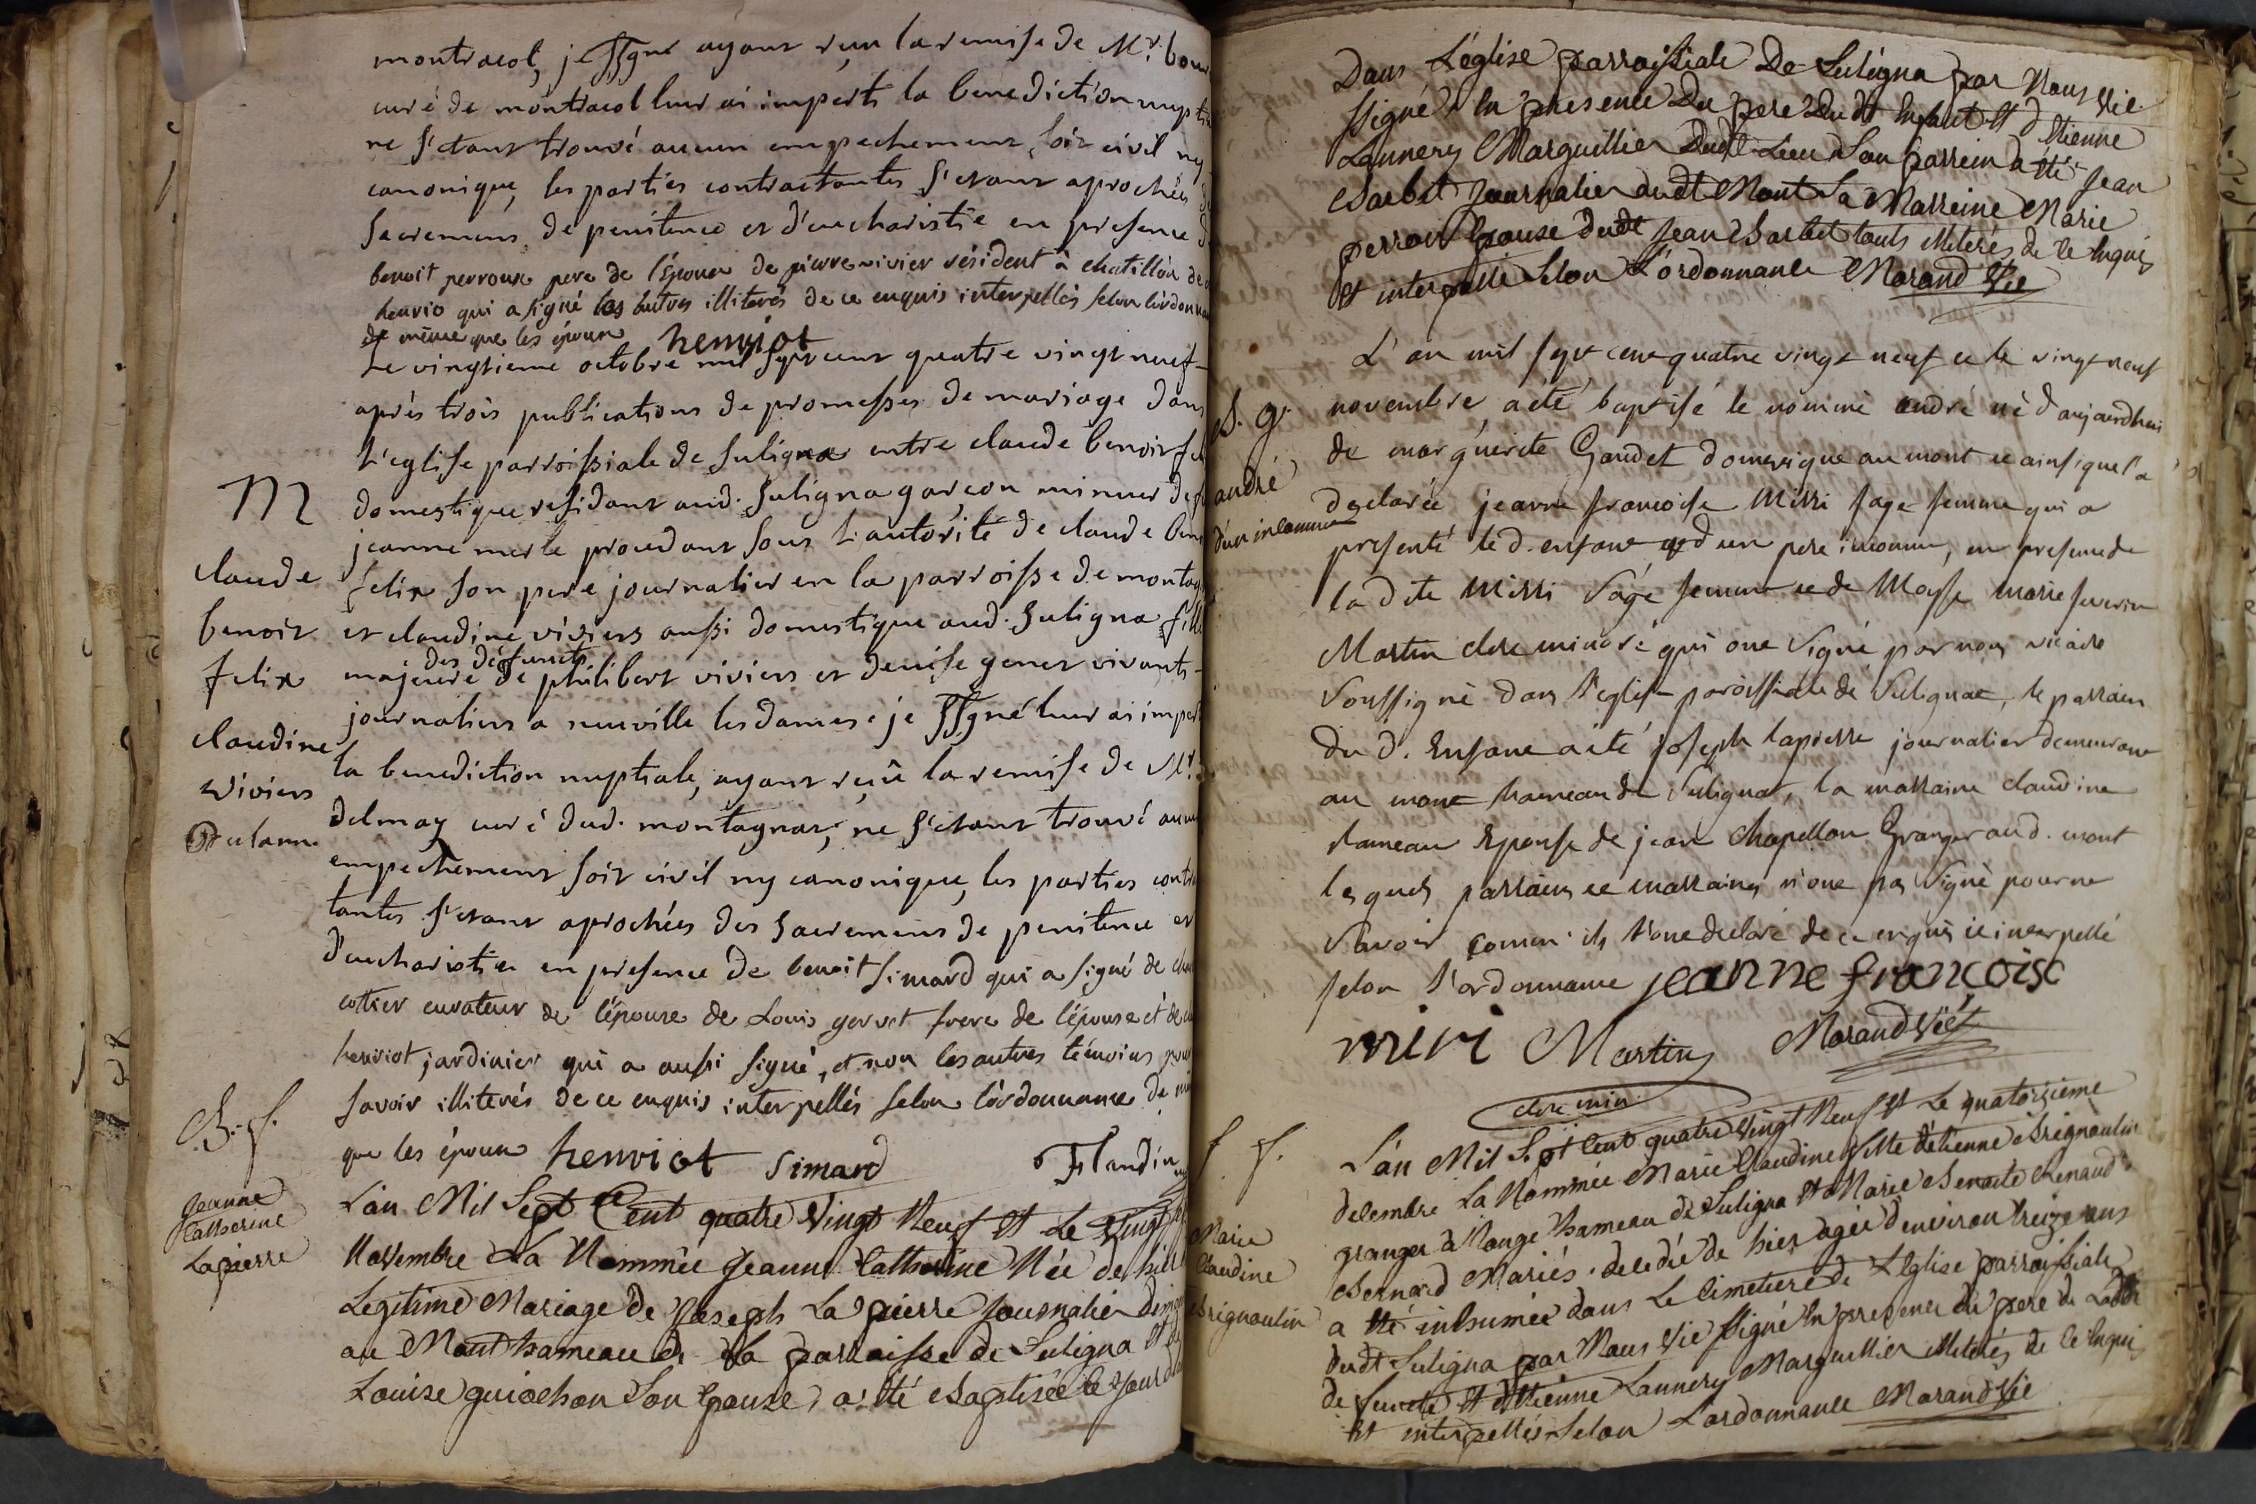 montracol, je ssgné ayant reçu la remise de Mr. bou
curé de montracol leur ai imparti la benediction nupti
ne s'étant trouvé aucun empechement, soit civil ny
canonique, les parties contractantes s'étant aprochées
sacremens de penitence et d'eucharistie en presence
benoit perroux pere de l'époux de pierre vivier résident à chatillon de
henrio qui a signé les autres illiterés de ce enquis interpellés selon l'ordonna
de même que les époux henriot
M
claude
benoit
felix
claudine
viviers
Le vingtieme octobre mil sept cent quatre vingt neuf
après trois publications de promesses de mariage dans
l'eglise parroissiale de suligna entre claude benoit fe
domestique résidant aud. suligna garçon mineur de f
jeanne merle procedant sous l'autorité de claude ben
felix son pere journalier en la parroisse de montag
et claudine viviers aussi domestique aud. suligna fille
des défunts
majeure de philibert viviers et denise genet vivants
journaliers a neuville les dames: je ssgné leur ai impar
la benediction nuptiale, ayant reçû la remise de Mr.
delmay curé dud. montagnat; ne s'étant trouvé aucun
empechement soit civil ny canonique, les parties contra
tantes s'étant aprochées des sacremens de penitence et
d'eucharistie en presence de benoit simard qui a signé de
cottier curateur de l'épouse de Louis gervet frere de l'épouse et de
henriot jardinier qui a aussi signé, et non les autres témoins pour
savoir illiterés de ce enquis interpellés selon l'ordonnance de
que les époux henriot simard Flandin
B. f.
Jeanne
Catherine
Lapierre
L'an Mil Sept Cent quatre Vingt Neuf et Le Vingt
Novembre La Nommée Jeanne Catherine Née de hier
Legitime Mariage de Joseph La pierre Journalier
au Mont hameau de La parroisse de Suligna et
Louise guiochon Son Epouse, a été Baptisée ce Jour
Dans L'église parroissiale De Suligna par Nous Vic.
ssigné En presence Du pere Dudt Enfant et d'Etienne
Lannery Marguillier Dudt Lieu Son parrein a été Jean
Barbet Journalier audt Mont La Marreine Marie
perroux Epouse dudt Jean Barbet touts illiterés de ce Enquis
et interpellé Selon L'ordonnance Morand Vic
B. g.
andré
d'un inconnu
L'an mil sept cent quatre vingt neuf et le vingt neuf
novembre a été baptisé le nommé andré né d'aujourdhui
de marguerite Gaudet domestique au mont et ainsi que l'a
declarée jeanne francoise Mirri sage femme qui a
presenté led. enfant d'un pere inconnu, en presence de
ladite Mirri sage femme et de Messe marie severin
Martin clerc minoré qui ont signé par nous vicaire
soussigné dans l'eglise paroissiale de sulignat, le parrain
du d. Enfant a été joseph lapierre journalier demeurant
au mont hameau de sulignat, la marraine claudine
rameau Epouse de jean Chapellon Granger aud. mont
lesquels parrain et marraine n'ont pas signé pour ne
savoir comm' ils l'ont declaré de ce enquis et interpellé
selon l'ordonnance jeanne francoise
miri Martin Morand Vic
clerc min.
f. f.
Marie
Claudine
Brignoulin
L'an Mil Sept Cent quatre Vingt Neuf et Le quatorzieme
decembre La Nommée Marie Claudine fille d'étienne Brignoulin
granger à Longe hameau de Suligna et Marie Benoite Renaud
Bernard Mariés. decedée de hier agée d'environ treize ans
a été inhumée dans Le Cimetiere de L'église parroissiale
dudt Suligna par Nous Vic ssigné En presence du pere de Ladte
defuncte et d'Etienne Lannery Marguillier illiterés de ce Enquis
et interpellés Selon L'ordonnance Morand Vic